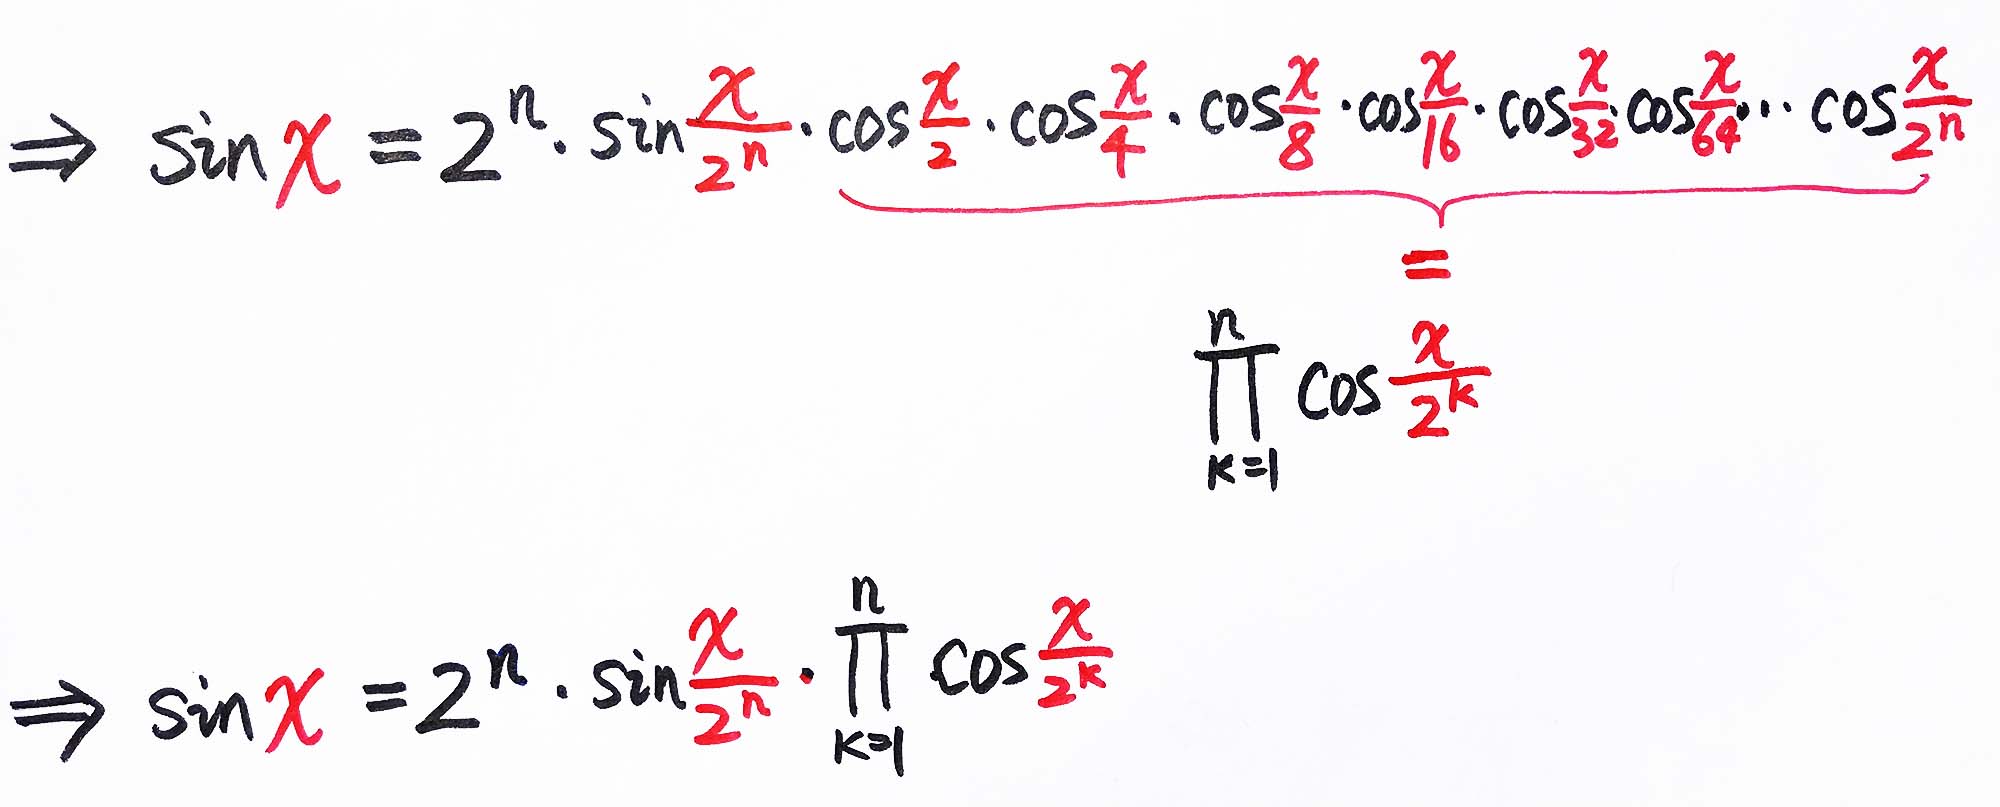 ⇒ sin x = 2^n · sin x/2^n · cos x/2 · cos x/4 · cos x/8 · cos x/16 · cos x/32 · cos x/64 ··· cos x/2^n
=
∏_{k=1}^{n} cos x/2^k
⇒ sin x = 2^n · sin x/2^n · ∏_{k=1}^{n} cos x/2^k